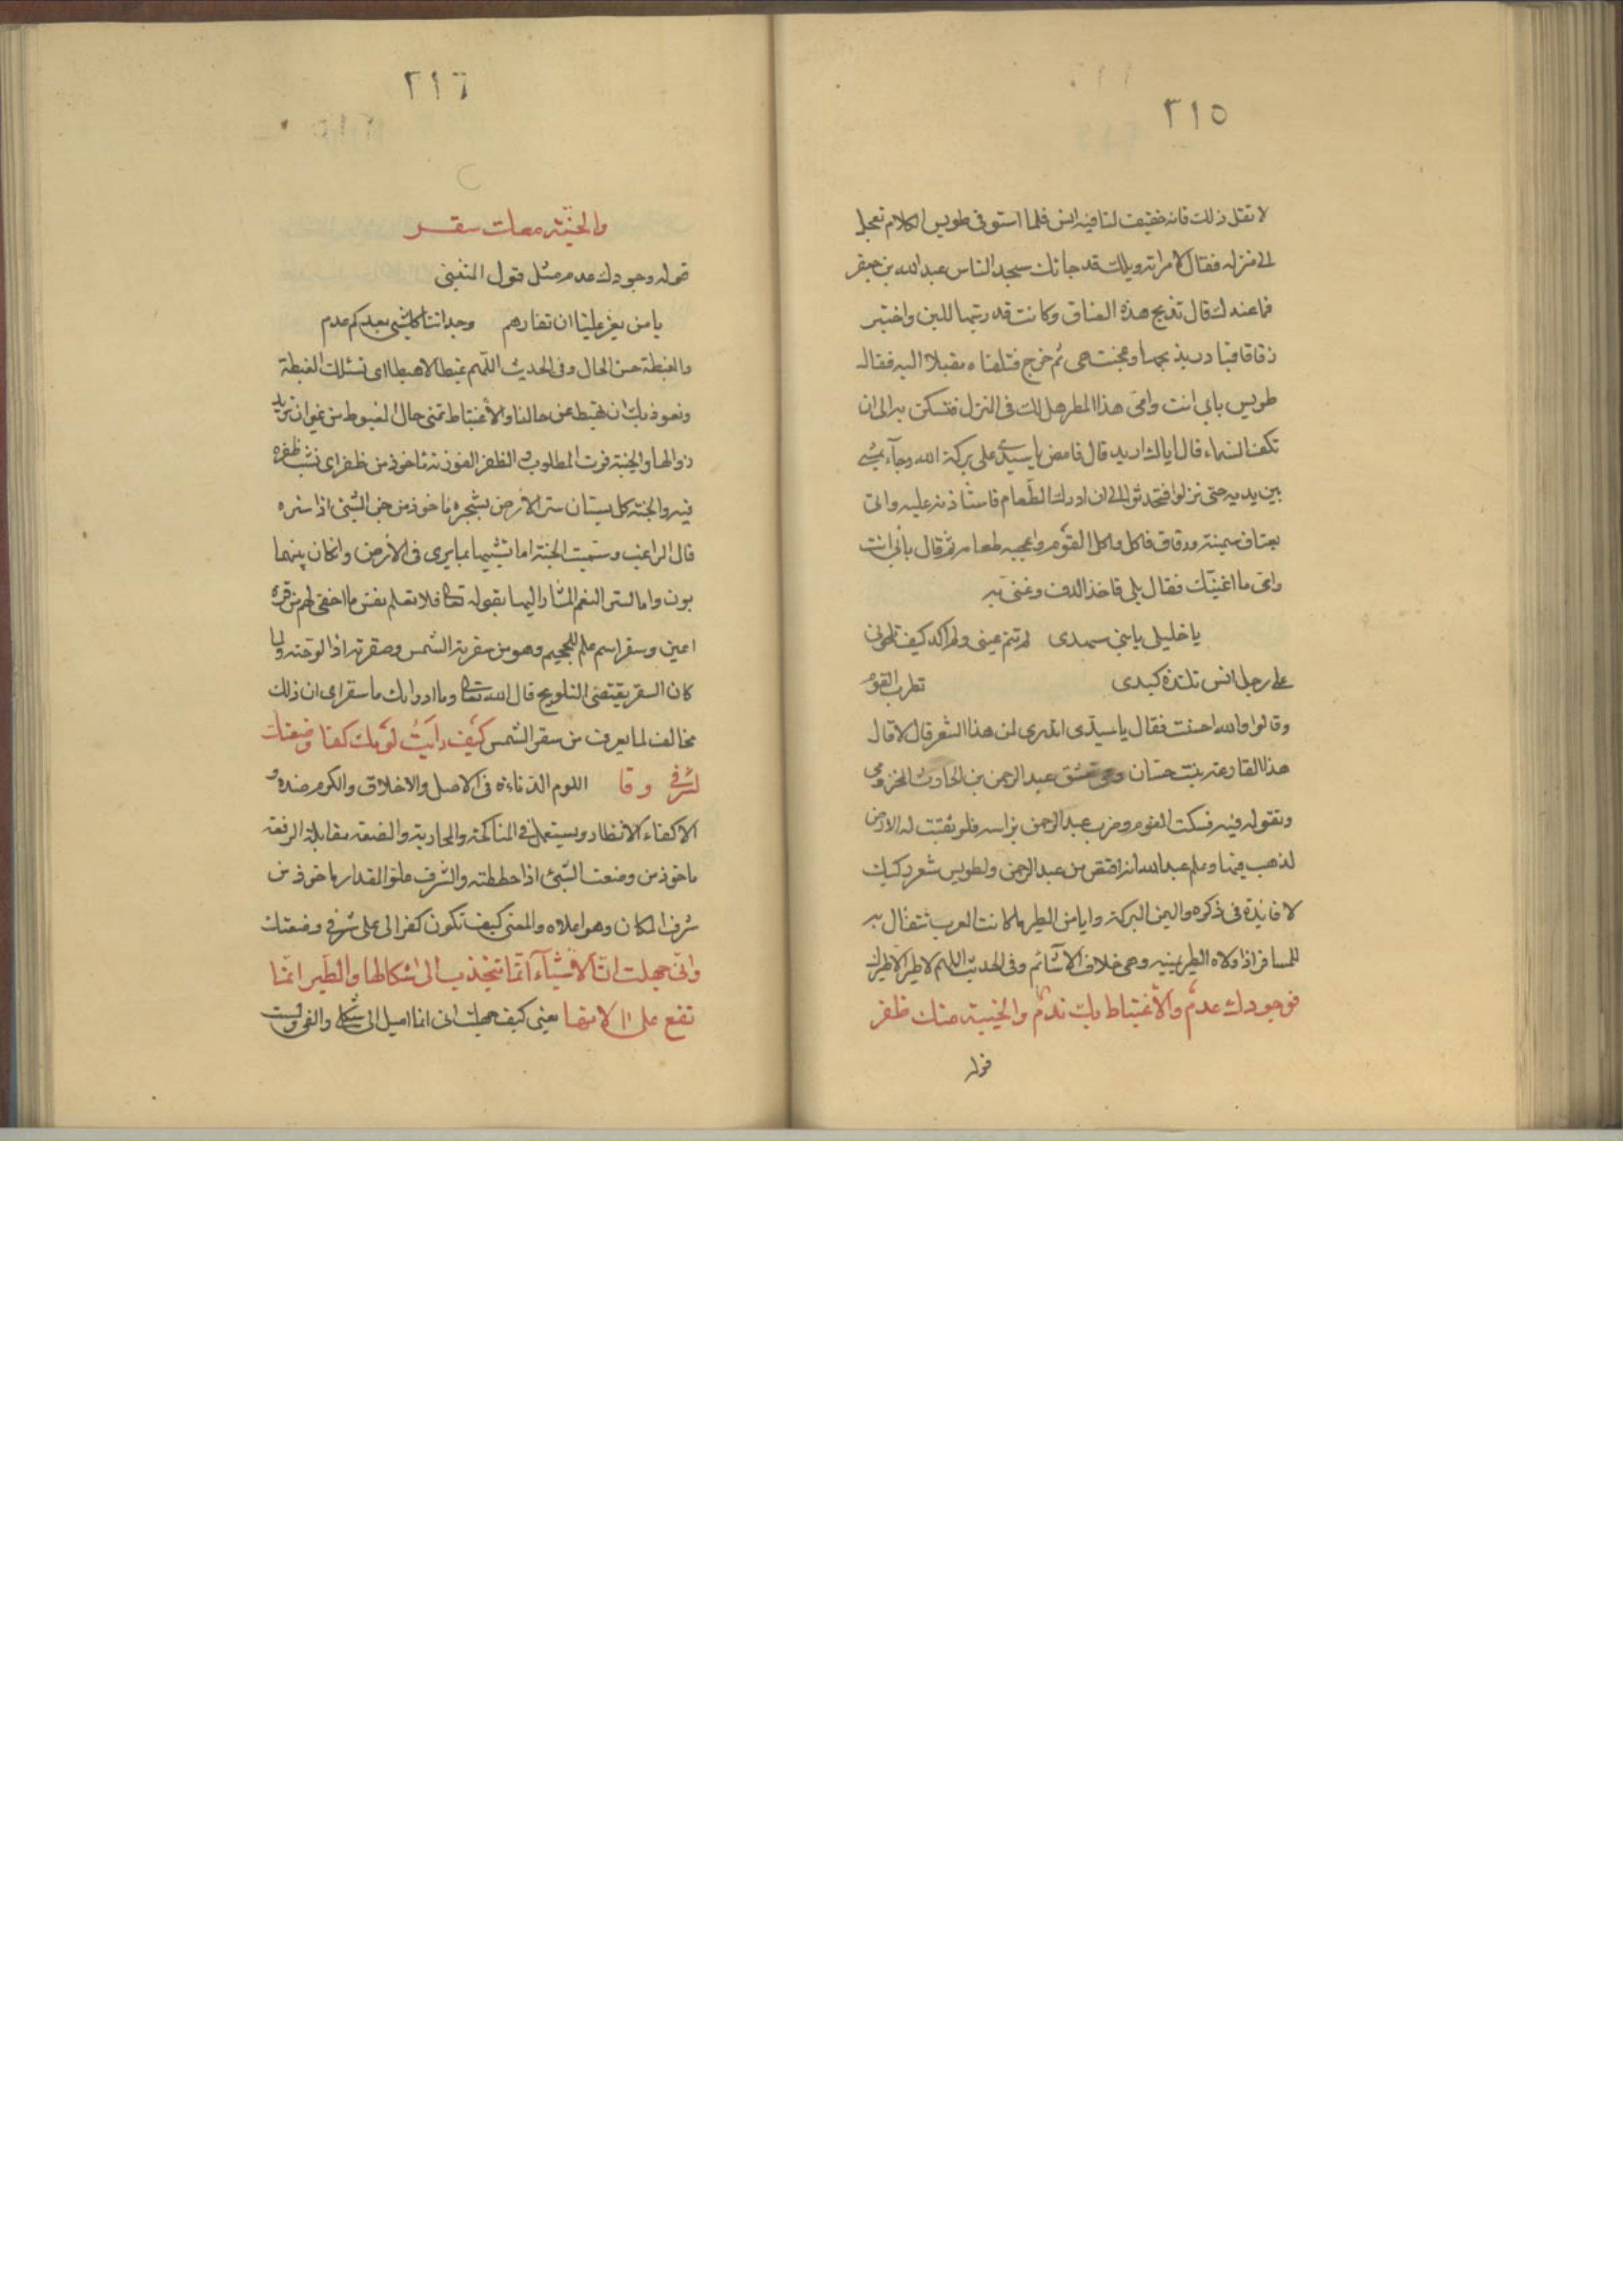 ٣١٥
لا تقل ذلك فانه خفيف لنا فيه انس فلما استوفى طويس الكلام تعجل
الى منزله فقال لامراته ويلك قد جائك سيد الناس عبد الله بن جعفر
فما عندك قال تذبح هذه العناق وكانت قد ربتها للبن واختبر
رقاقا فبادر يذبحها وعجنت هى ثم خرج فتلقاه مقبلا اليه فقال
طويس بابى انت وامى هذا المطر هل لك فى المنزل فتسكن به الى ان
تكف السماء قال اياك اريد قال فامض يا سيدى على بركة الله وجآء يمشى
بين يديه حتى نزلوا فتحدثوا الى ان ادرك الطعام فاستاذنه عليه واتى
بعناق سمينة ورقاق فاكل واكل القوم واعجبه طعامه ثم قال بابى انت
وامى ما اغنيك فقال بلى فاخذ الدف وغنى به
يا خليلى يا بنى سهدى لم تنم عينى ولم اكد كيف تلحونى
على رجل انس تلتذه كبدى تطرب القوم
وقالوا والله احسنت فقال يا سيدى اتدرى لمن هذا الشعر قال لا قال
هذا لقارعة بنت حسان وهى تعشق عبد الرحمن بن الحارث المخزومى
وتقول فيه فسكت القوم وضرب عبد الرحمن براسه فلو نقبت له الارض
لذهب فيها وعلم عبد الله انه اقتص من عبد الرحمن ولطويس شعر ركيك
لا فائدة فى ذكره واليمن البركة وايامن الطير ما كانت العرب تتفال به
للمسافر اذا ولاه الطير يمينه وهى خلاف الاشائم وفى الحديث اللهم لا طير الا طيرك
فوجودك عدم والاغتباط بك ندم والخيبة منك ظفر
قوله
٣١٦
والجنة معك سقر
قوله وجودك عدم مثل قول المتنبى
يا من يعز علينا ان نفارقهم وجداننا كل شئ بعدكم عدم
والغبطة حسن الحال وفى الحديث اللهم غبطا لا هبطا اى نسئلك الغبطة
ونعوذ بك ان نهبط عن حالنا والاغتباط تمنى حال المغبوط من غير ان تريد
زوالها والخيبة فوت المطلوب والظفر الفوز به ماخوذ من ظفر اى نشب ظفره
فيه والجنة كل بستان ستر الارض بشجره ماخوذ من جن الشئ اذا ستره
قال الراغب وسميت الجنة اما تشبيها بما يرى فى الارض وان كان بينهما
بون واما لستر النعم المشار اليها بقوله تعالى فلا تعلم نفس ما اخفى لهم من قرة
اعين وسقر اسم علم للجحيم وهو من سقرته الشمس وصقرته اذا لوحته ولما
كان السقر يقتضى التلويح قال الله تعالى وما ادراك ما سقر اى ان ذلك
مخالف لما يعرف من سقر الشمس كيف رايت لؤمك كفا وضعتك
لشرفى وفا اللوم الدناءة فى الاصل والاخلاق والكرم ضده و
الاكفاء الانظار ويستعمل فى المناكحة والمحاربة والضعة مقابلة الرفعة
ماخوذ من وضعت الشئ اذا حططته والشرف علو المقدار ماخوذ من
شرف المكان وهو اعلاه والمعنى كيف تكون كفوا لى على شرفى وضعتك
وانى جهلت ان الاشيآء انما تنجذب الى اشكالها والطير انما
تقع على الافها يعنى كيف جهلت انى انما اميل الى شكلى والفى ولست